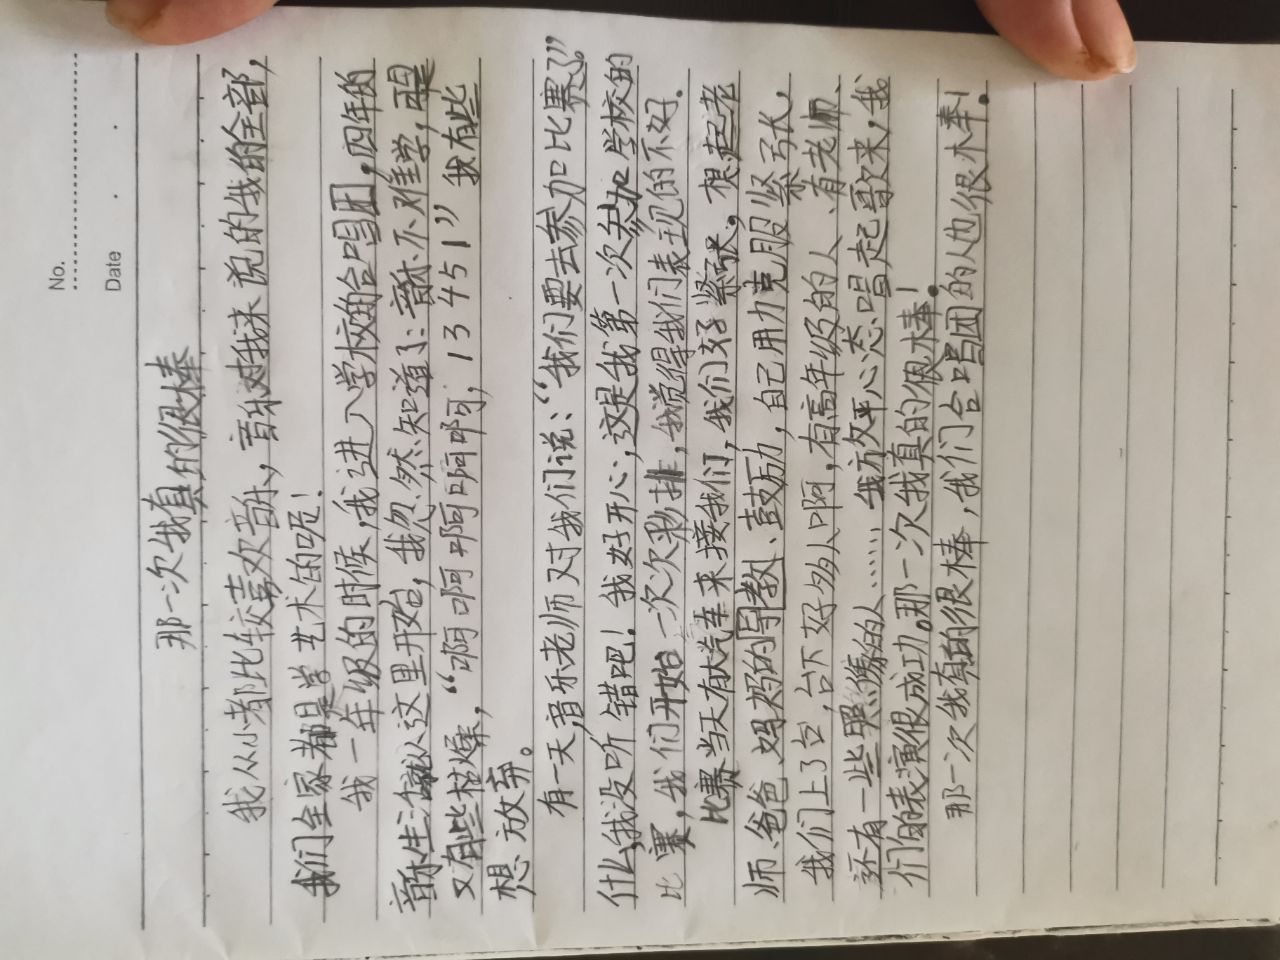 No.
Date
那一次我真的很棒
我从小都比较喜欢音乐，音乐对我来说的我的全部，
我们全家都是学艺术的呢！
我一年级的时候，我进入学校的合唱团，四年的
音乐生活就从这里开始，我忽然知道了：音乐不难学，
又有些枯燥，“啊啊啊啊啊，13451”我有些
想放弃。
有一天，音乐老师对我们说：“我们要去参加比赛了。”
什么，我没听错吧！我好开心，这是我第一次参加学校的
比赛，我们开始一次次彩排，我觉得我们表现的不好。
比赛当天有大汽车来接我们，我们好紧张，想起老
师、爸爸、妈妈的教、鼓励，自己用力克服紧张，
我们上了台，台下好多人啊，有高年级的人、有老师、
还有一些熟悉的人……我放平心态唱起歌来，我
们的表演很成功。那一次我真的很棒！
那一次我真的很棒，我们合唱团的人也很棒！